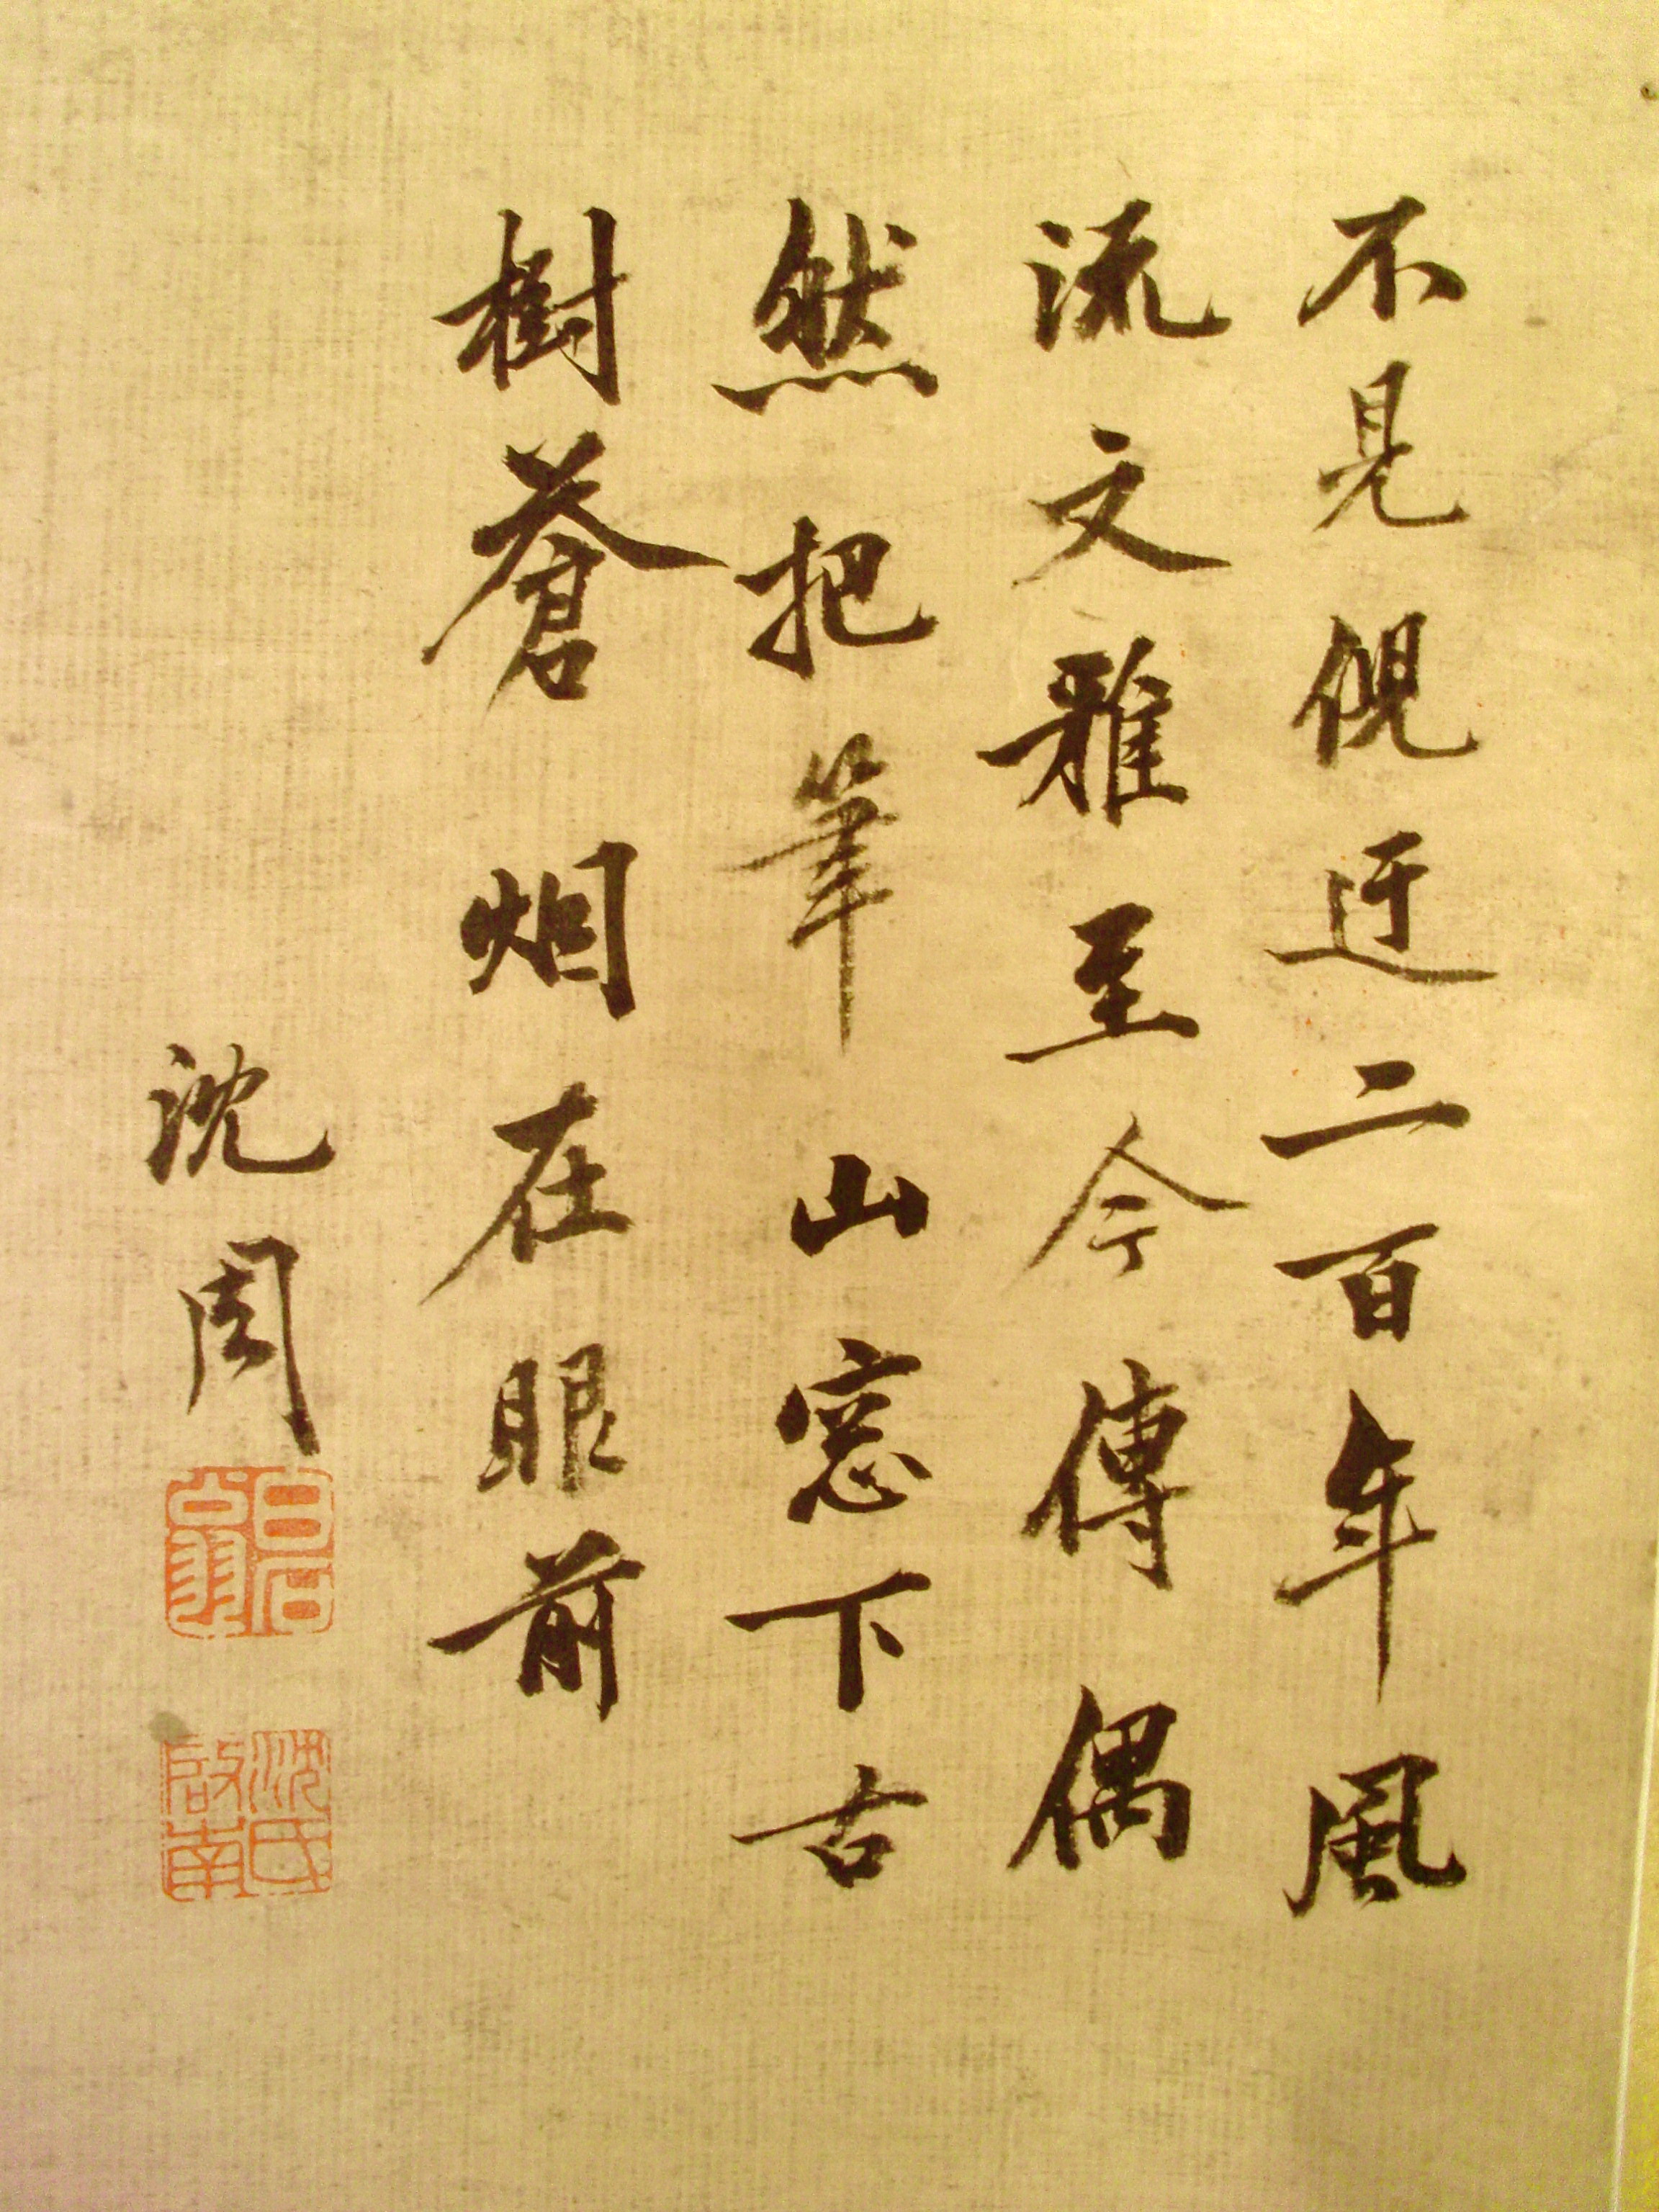 不見倪迂二百年風
流文雅至今傳偶
然把筆山窓下古
樹蒼烟在眼前
沈周
白石翁
沈氏啟南